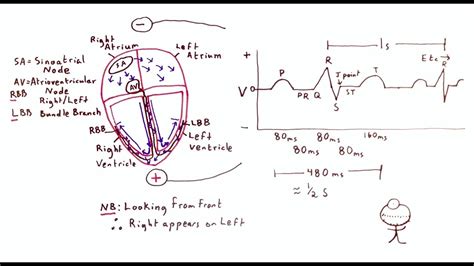 Right
Atrium
Left
Atrium
SA = Sinoatrial
Node
AV = Atrioventricular
Node
RBB Right/Left
LBB Bundle Branch
SA
AV
RBB
LBB
Right
Ventricle
Left
Ventricle
NB: Looking from front
∴ Right appears on Left
1s
Etc
R
R
P
J point
T
V
PR Q
S
ST
80ms 80ms 160ms
80ms 80ms
480ms
≈ 1/2 S